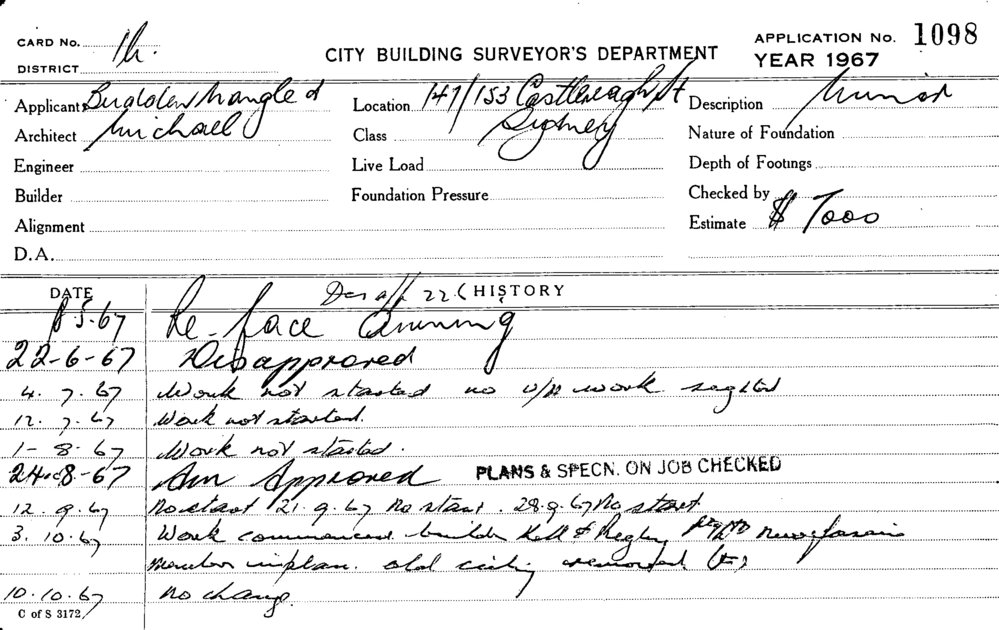 CARD No.
DISTRICT
CITY BUILDING SURVEYOR'S DEPARTMENT
APPLICATION No. 1098
YEAR 1967
Applicant Budden Nangle &
Architect Michael
Engineer
Builder
Alignment
D.A.
Location 147/153 Castlereagh St
Class Sydney
Live Load
Foundation Pressure
Description Minor
Nature of Foundation
Depth of Footings
Checked by
Estimate $ 7000
DATE HISTORY
5-67 Re-face Awning
22-6-67 Disapproved
4. 7. 67 Work not started no work sighted
12. 7. 67 Work not started.
1-8-67 Work not started.
24-8-67 Am Approved PLANS & SPECN. ON JOB CHECKED
12. 9. 67 No start 21. 9. 67 No start. 28. 9. 67 No start
3. 10. 67 Work commenced builder Kell & Rigby New fascia
in plan. old removed
10. 10. 67 No change.
C of S 3172